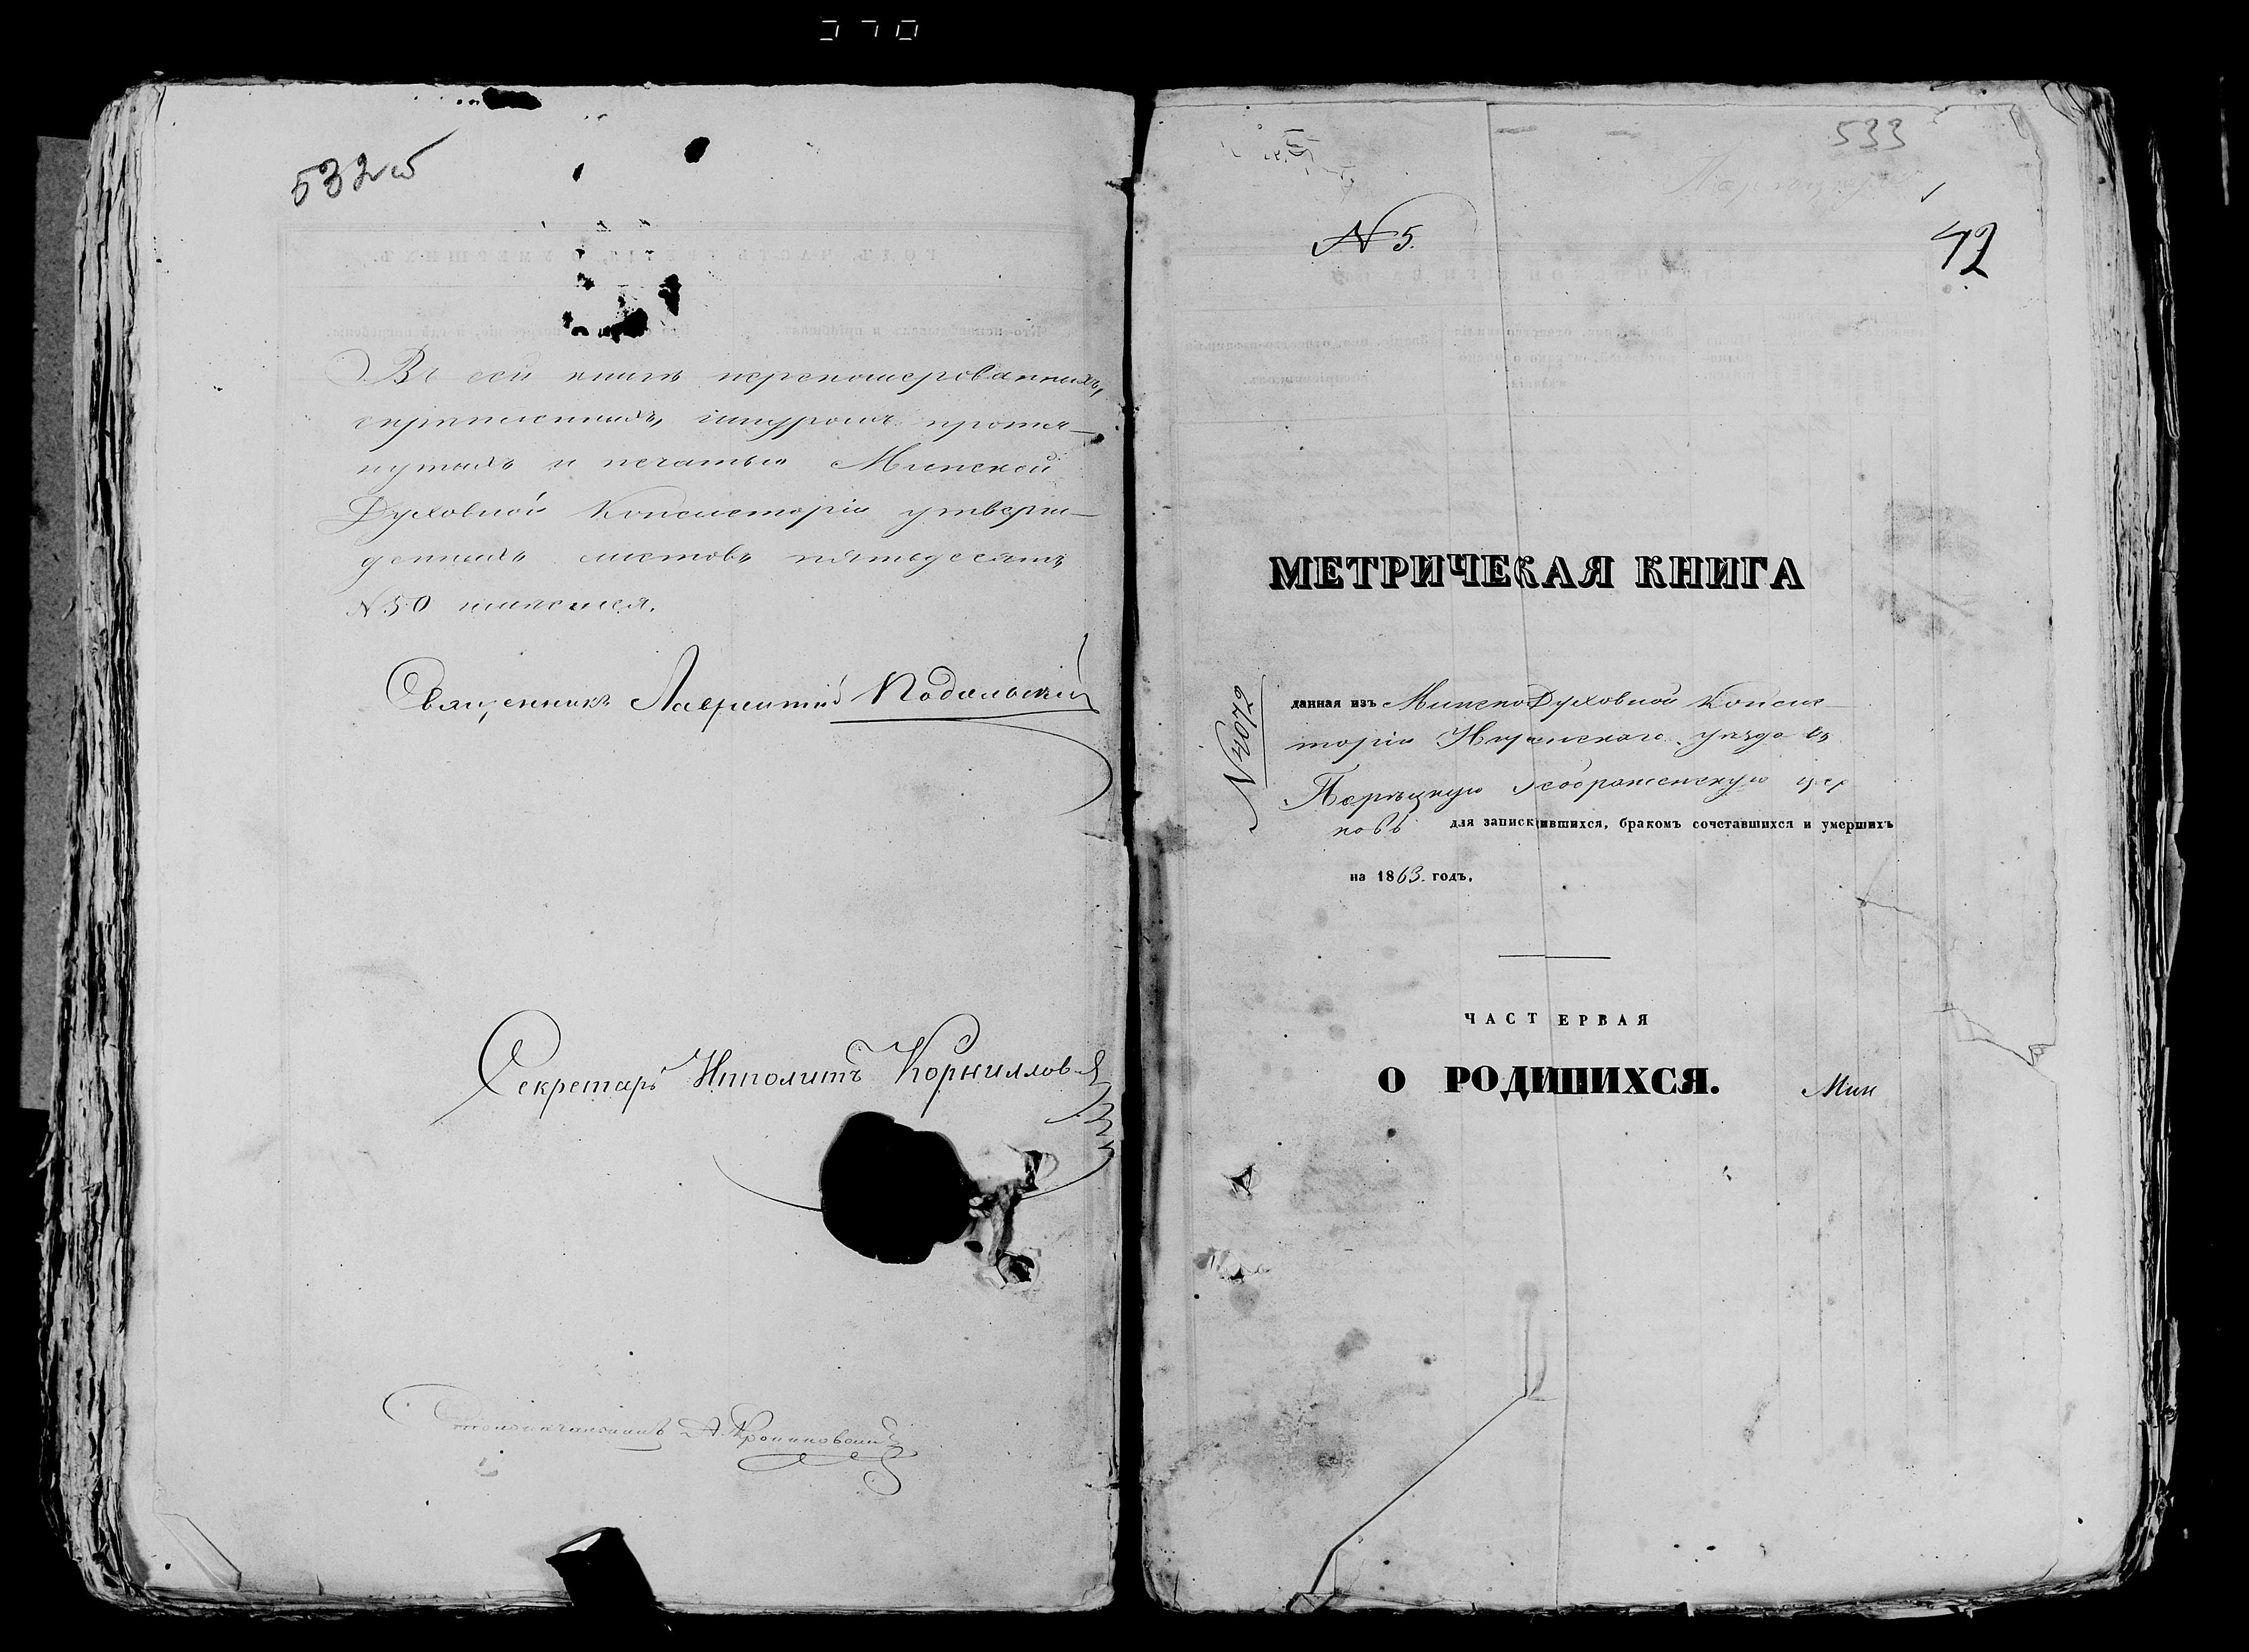 532 об
Въ сей книгѣ перенумерованныхъ,
скрѣпленныхъ, шнуромъ протя-
нутыхъ и печатью Минской
Духовной Консисторіи утверж-
денныхъ листовъ пятьдесятъ
N 50 имѣется.
Священникъ Лаврентій Подольскій
Секретарь Ипполитъ Корниллов
Столоначальникъ А.
533
N 5.
42
МЕТРИЧЕКАЯ КНИГА
N 4072
данная изъ Минской Духовной Консис-
торіи уѣзда въ
цер
ковь для записк ившихся, бракомъ сочетавшихся и умершихъ
на 1863. годъ.
ЧАСТ ЕРВАЯ
О РОДИШИХСЯ.
Мин